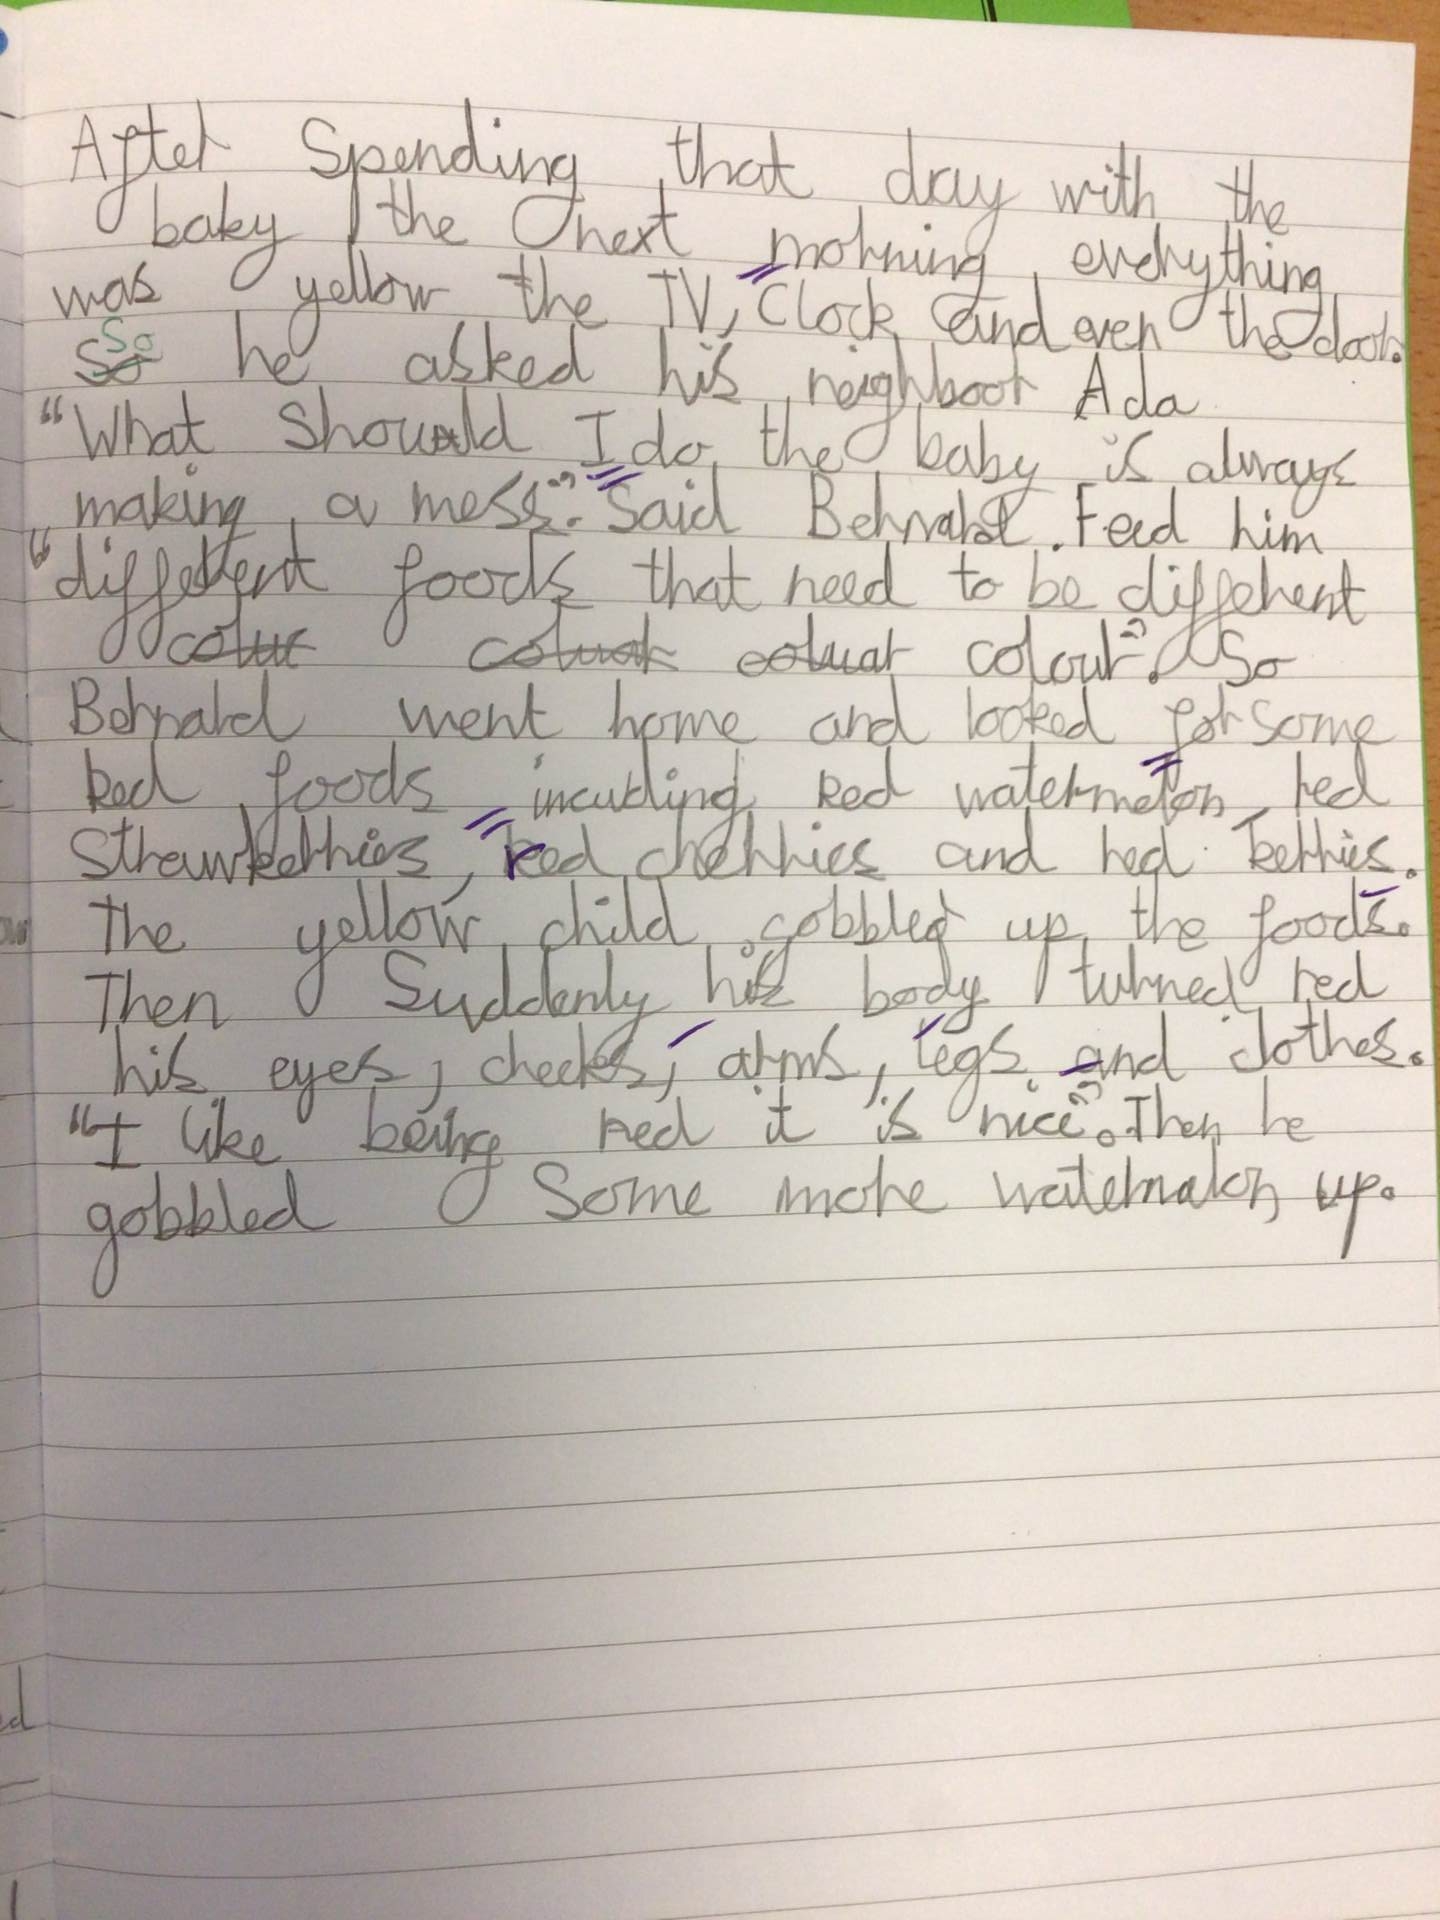 After Spending that day with the
baby the next morning everything
was yellow the TV, Clock and even the door.
So he asked his neighboor Ada
"What should I do the baby is always
making a mess". Said Bernard. Feed him
"different foods that need to be different
colour". So
Bernard went home and looked for some
Red foods incuding red watermelon, red
Strawberries, red cherries and red berries.
The yellow child gobbled up the foods.
Then Suddenly his body turned red
his eyes, cheeks, arms, legs and clothes.
"I like being red it is nice". Then he
gobbled Some more watermalon up.